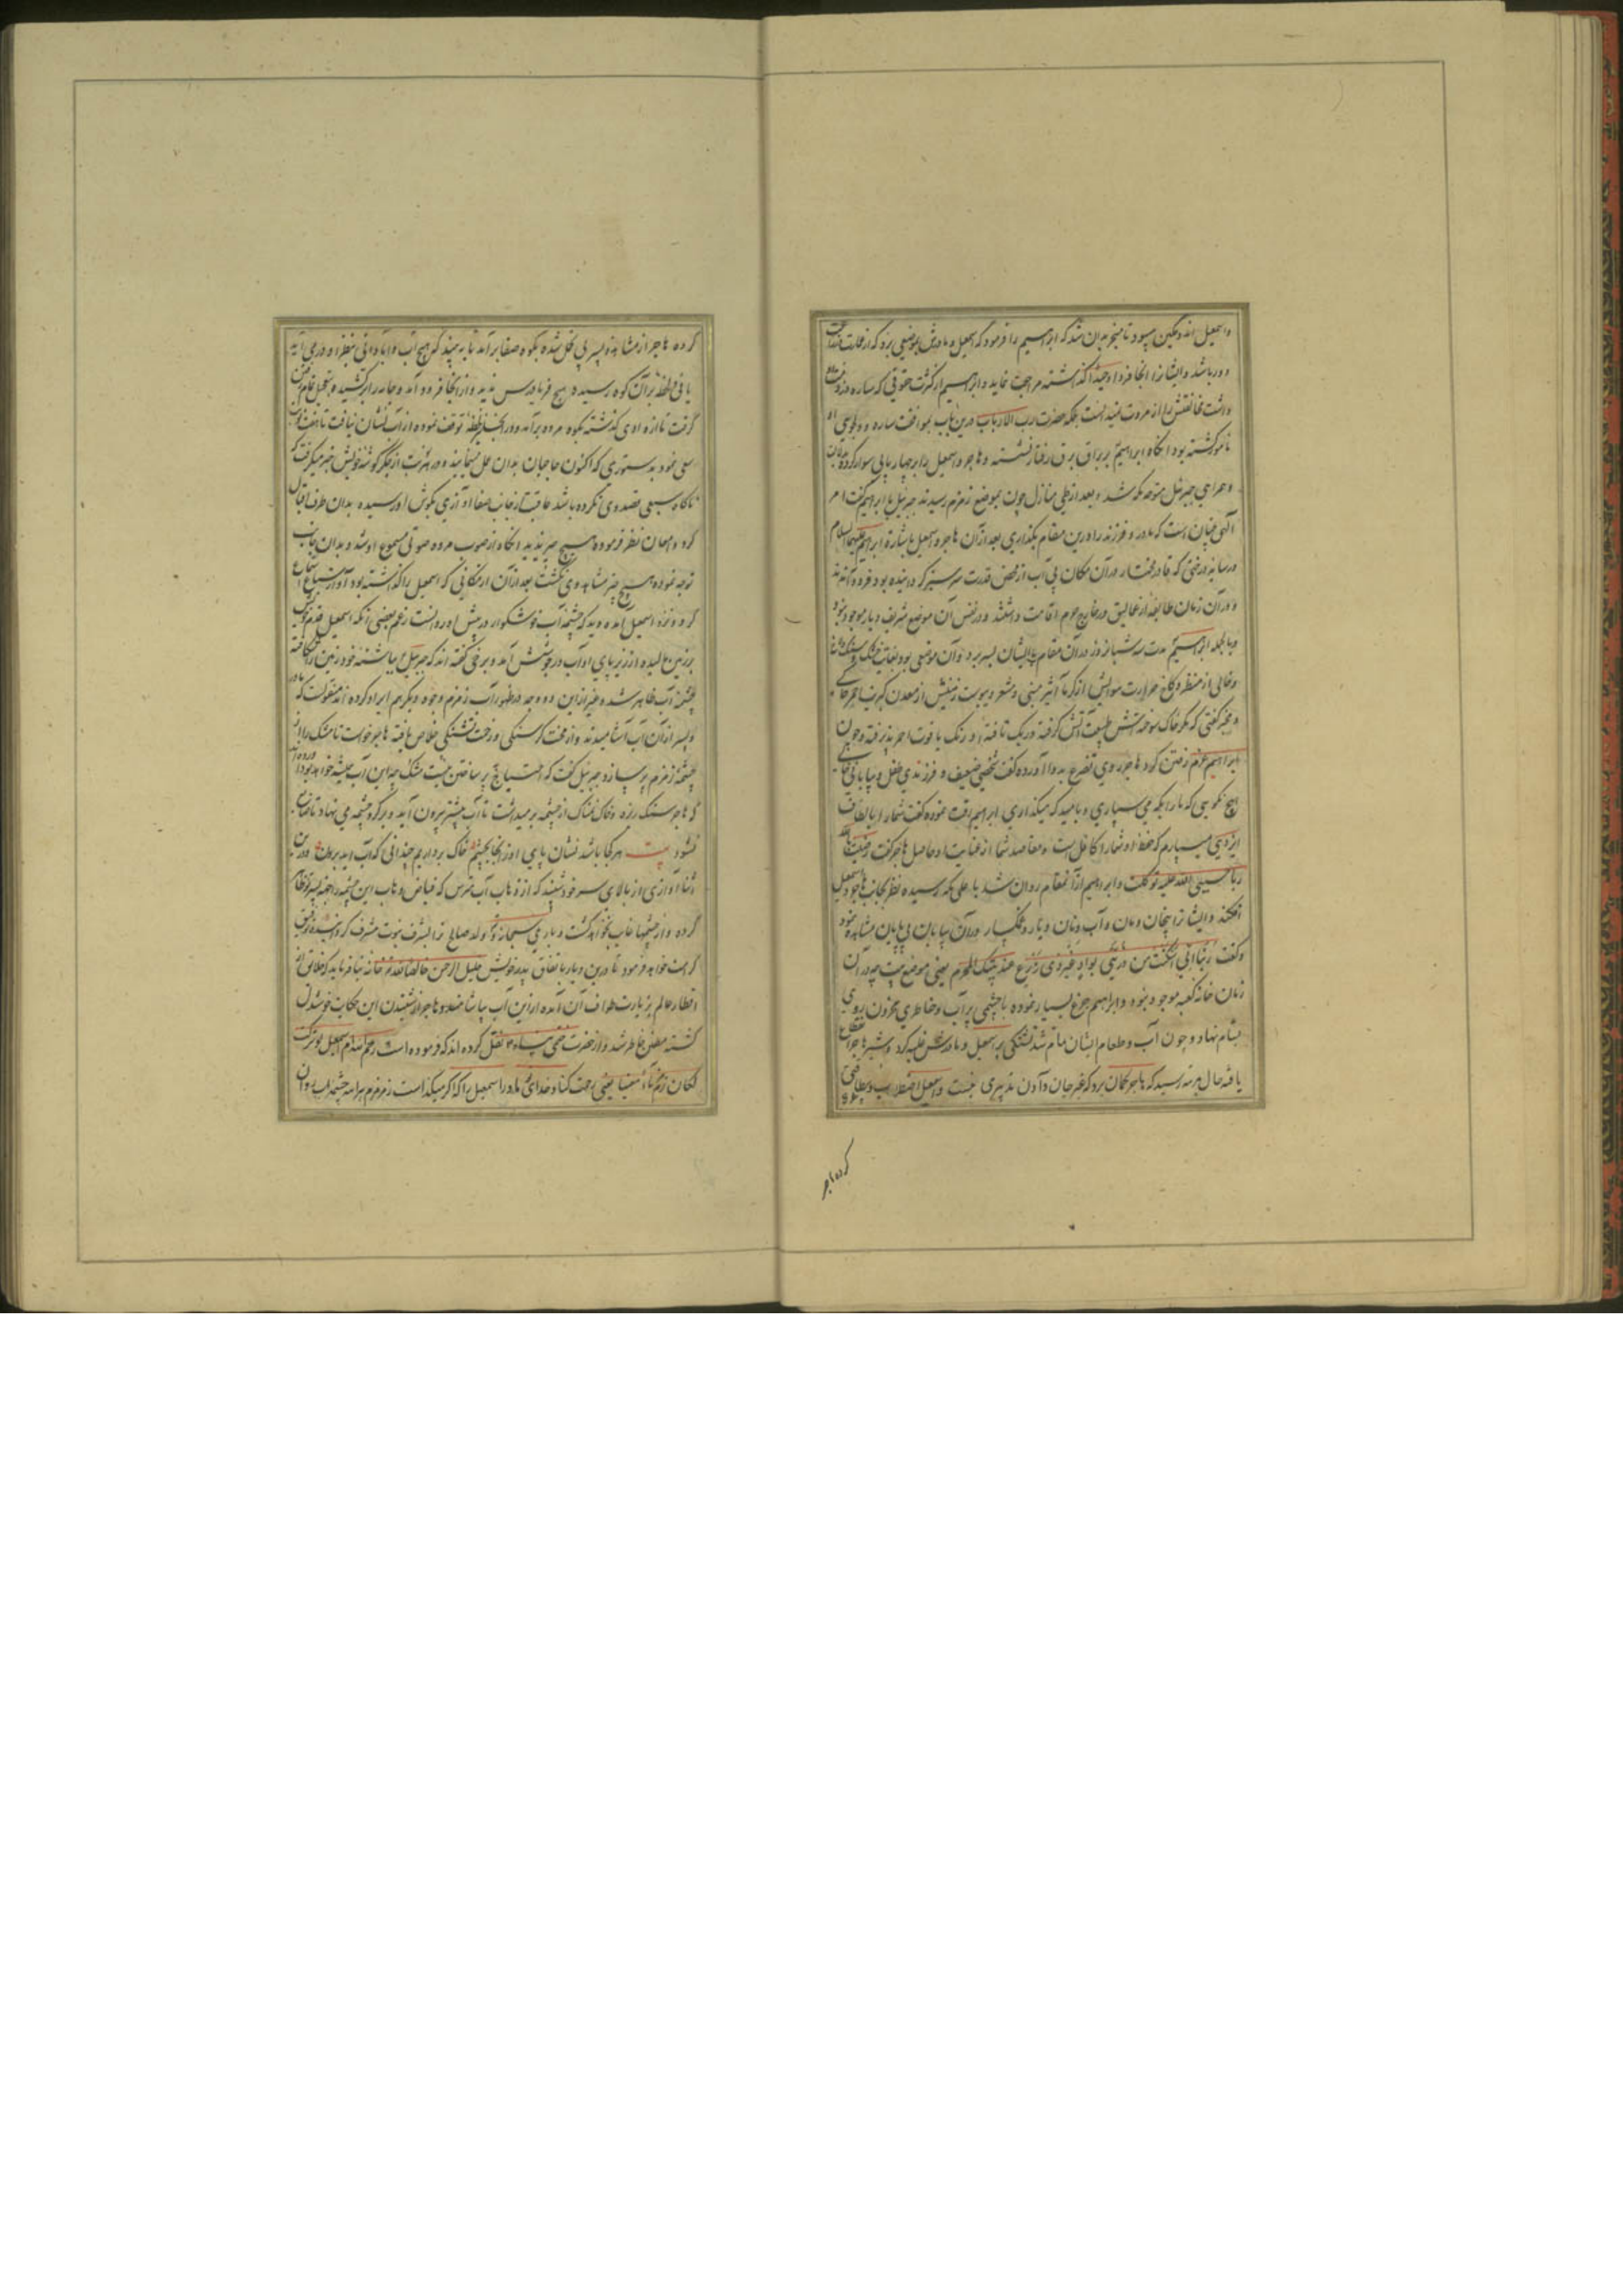 واسمعیل اندوهگین میبود تا منجر بدان شد که ابراهیم را فرمود که اسمعیل و مادرش بموضعی برد که از عمارت
دور باشد و ایشانرا آنجا فردا وحیدا گذاشته مراجعت نماید و ابراهیم از کثرت حقوقی که ساره در ذمت
داشت مخالفتش را از مروت ندانست بلکه حضرت رب الارباب درین باب بموافقت ساره و وحی
مامور گشته بود آنگاه ابراهیم بر براق برق رفتار نشسته و هاجر و اسمعیل را بر چهار پایی سوار کرده
و همراهی جبرئیل متوجه مکه شد و بعد از طی منازل چون بموضع زمزم رسیدند جبرئیل با ابراهیم گفت امر
الهی چنان است که مادر و فرزند را درین مقام بگذاری بعد از آن هاجر و اسمعیل باشارة ابراهیم علیهما السلام
در سایه درختی که قادر مختار در آن مکان بی آب از محض قدرت سرسبز گردانیده بود فرود آمدند
و در آن زمان طایفه از عمالیق در خارج حرم اقامت داشتند و در نفس آن موضع شریف دیار موجود نبود
و بالجمله ابراهیم مدت سه شبانروز در آن مقام با ایشان بسر برد و آن موضعی بود بغایت خشک
و خالی از منظر و کاخ حرارت هوایش از کره اثیر مبنی و شعر و یبوست زمینش از معدن کبریت احمر حاکی
و مخبر گفتی که مگر خاک سوخته‌اش طبیعت آتش گرفته و ریک تافته او رنگ یاقوت احمر پذیرفته و چون
ابراهیم عزم رفتن کرد هاجر روی تضرع بدو آورده گفت شخصی ضعیف و فرزندی طفل و بیابانی
هیچ نگویی که ما را بکه می سپاری و بامید که میگذاری ابراهیم رقت نموده گفت شما را بالطاف
ایزدی میسپارم که حفظ او شما را کافل است و مقاصد شما از عنایت او حاصل هاجر گفت رضیت بالله
ربا حسبی الله علیه توکلت و ابراهیم از آن مقام روان شد باعلی مکه رسیده نظر بجانب هاجر و اسمعیل
افکند و ایشانرا بیخان و مان و آب و نان و یار و غمگسار در آن بیابان بی پایان مشاهده نمود
و گفت ربنا انی اسکنت من ذریتی بواد غیر ذی زرع عند بیتک المحرم یعنی موضع بیت چه در آن
زمان خانه کعبه موجود نبود و ابراهیم جزع بسیار نموده با چشمی پر آب و خاطری محزون روی
بشام نهاد و چون آب و طعام ایشان تمام شد تشنگی بر اسمعیل و مادرش غلبه کرد و شیر هاجر
یافته حال بمرتبه رسید که هاجر گمان برد که غیر جان دادن تدبیری نیست و اسمعیل اضطراب و بیطاقتی
کرده هاجر
کرده هاجر از مشاهده پسر بی تحمل شده بکوه صفا برآمد تا به بیند که هیچ آب و آبادانی بنظر او درمی آید
یا نی و لحظه بر آن کوه رسیده هیچ فریادرس ندید و از آنجا فرود آمد و جامه را برکشیده بتعجیل تمام رفتن
گرفت تا از وادی گذشته بکوه مروه برآمد و در آنجا نیز لحظه توقف نموده از آب نشان نیافت تا هفت نوبت
سعی نمود بدستوری که اکنون حاجیان بدان عمل مینمایند و در هر نوبت از جگر گوشه خویش خبر میگرفت که
ناگاه سبعی قصد وی نکرده باشد عاقبت از جانب صفا آوازی بگوش او رسیده بدان طرف اقبال
کرد و امعان نظر فرموده هیچ چیز ندید آنگاه از صوب مروه صوتی مسموع او شد و بدان جانب
توجه نموده هیچ چیز مشاهد وی نگشت بعد از آن از مکانی که اسمعیل را گذاشته بود آواز سباع استماع
کرد و نزد اسمعیل آمده دید که چشمه آب خوشگوار در پیش او روانست زعم بعضی آنکه اسمعیل قدم خویش
بر زمین مالیده از زیر پای او آب در جوشش آمد و برخی گفته اند که جبرئیل بپاشنه خود زمین را شکافته
چشمه آب ظاهر شد و غیر از این دو وجه در ظهور آب زمزم وجوه دیگر هم ایراد کرده اند منقولست که مادر
و پسر از آن آب آشامیدند و از محنت گرسنگی و زحمت تشنگی خلاص یافته هاجر خواست تا مشک را از
چشمه زمزم پر سازد جبرئیل گفت که احتیاج پر ساختن نیست مشک چه این آب همیشه خواهد بود
که هاجر سنگ ریزه و خاک نمناک از چشمه برمیداشت تا آب بیشتر بیرون آید و بر گرد چشمه می نهاد تا ضایع
نشود بیت هر کجا باشد نشان پای او ز آنجا بچشم خاک برداریم چندانی که آب آید برون و درین
اثنا آوازی از بالای سر خود شنید که از ذهاب آب مترس که فیاض وهاب این چشمه را بجهة پسر تو ظاهر
کرده و از چشمها غایب نخواهد گشت و باری سبحانه و تعالی ولد صالح ترا بشرف نبوت مشرف گردانیده رفیق
کرامت خواهد فرمود تا درین دیار باتفاق پدر خویش خلیل الرحمن خالصا لله تع خانه بنا فرماید که خلایق از
اقطار عالم بزیارت طواف آن آمده از این آب بیاشامند و هاجر از شنیدن این حکایت خوشدل
گشته مطمئن خاطر شد و از حضرت ختمی پناه نقل کرده اند که فرموده است رحم الله ام اسمعیل لو ترکت
لکان زمزم ماء معینا یعنی رحمت کناد خدای مادر اسمعیل را که اگر میگذاست زمزم هر آینه چشمه آب روان